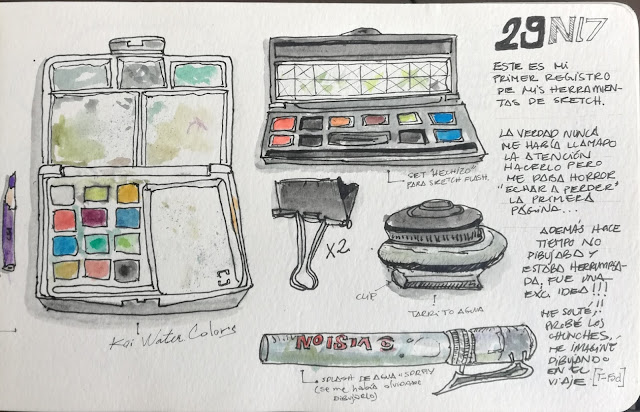 29N17
ESTE ES MI
PRIMER REGISTRO
DE MIS HERRAMIEN-
TAS DE SKETCH.
LA VERDAD NUNCA
ME HABÍA LLAMADO
LA ATENCIÓN
HACERLO PERO
ME DABA HORROR
"ECHAR A PERDER"
LA PRIMERA
PÁGINA...
ADEMÁS HACE
TIEMPO NO
DIBUJABA Y
ESTABA HERRUMBA-
DA. FUE UNA
EXC IDEA!!!
ME SOLTÉ,
PROBÉ LOS
CHUNCHES,
ME IMAGINÉ
DIBUJANDO
EN EL
VIAJE.
SET "HECHIZO"
PARA SKETCH PLASH.
X2
CLIP
TARRITO AGUA
Koi Water Colors
VISION
SPLASH DE AGUA = SPRAY
(SE ME HABÍA OLVIDADO
DIBUJARLO)